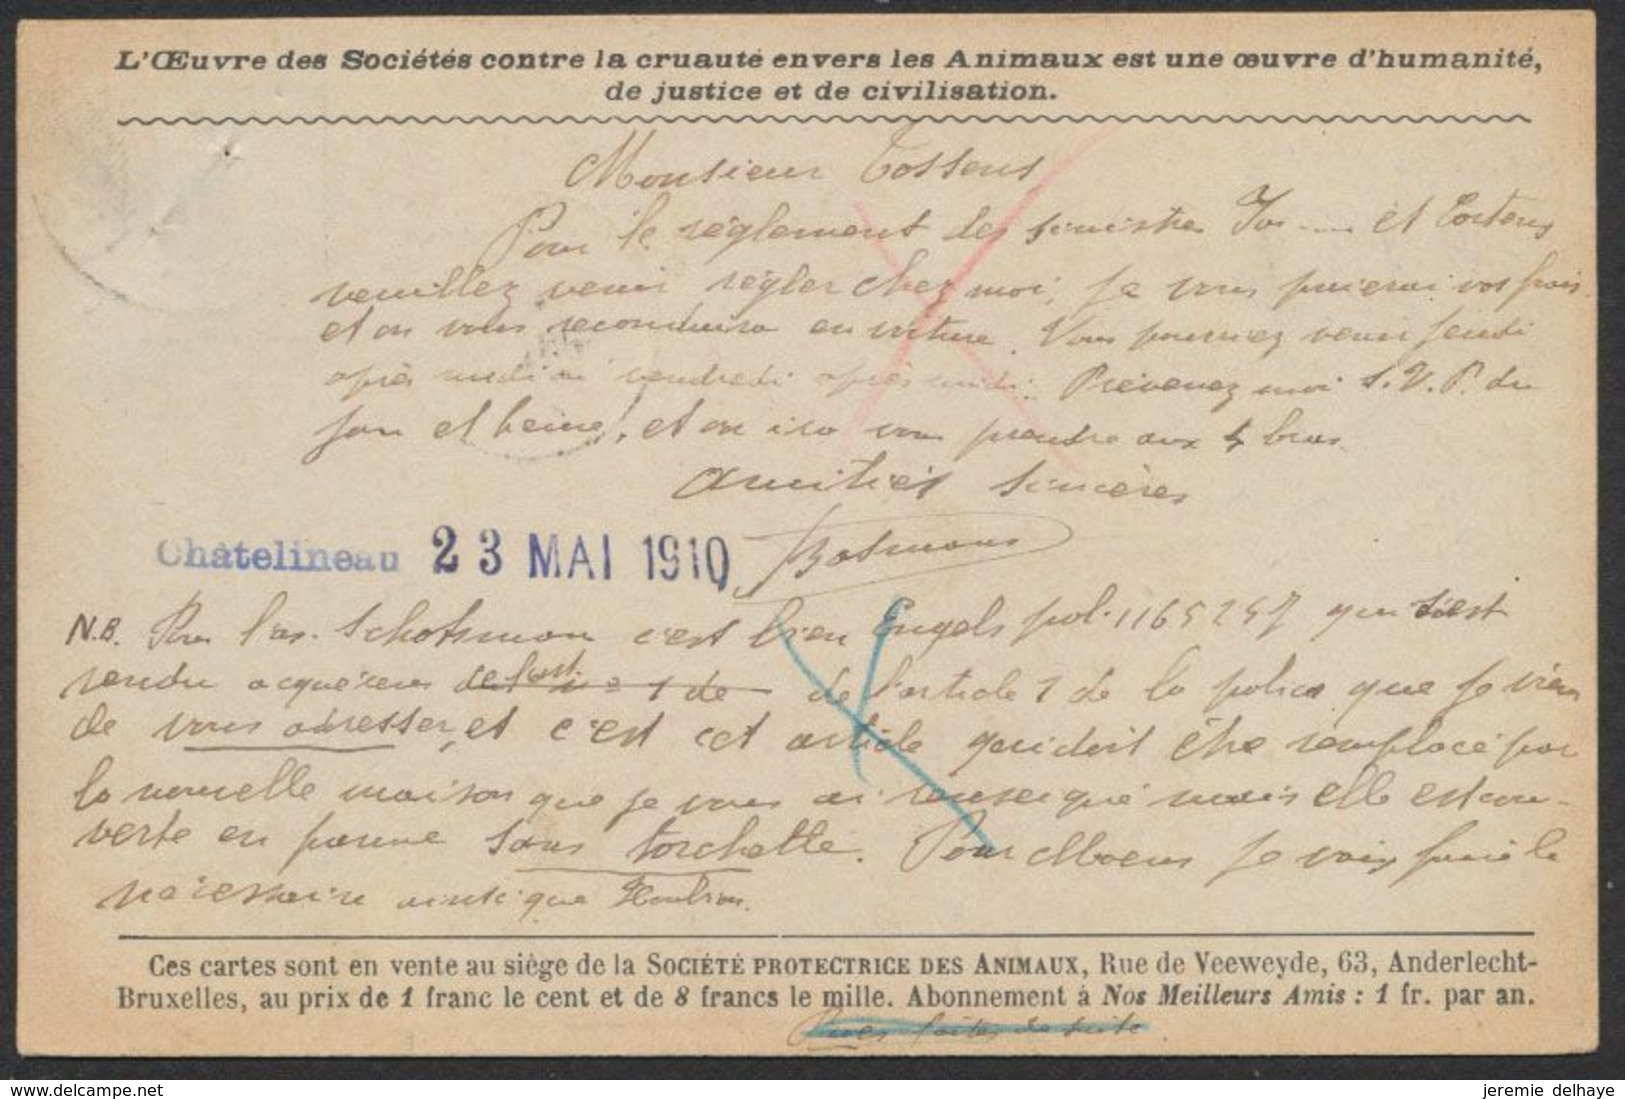 L'Œuvre des Sociétés contre la cruauté envers les Animaux est une œuvre d'humanité,
de justice et de civilisation.
Monsieur Tossens
Pour le règlement des sinistres Jos..... et
veuillez venir régler chez moi, je vous paierai vos frais
et on vous reconduira en voiture. Vous pourriez venir jeudi
après midi ou vendredi après midi. Prévenez moi S.V.P. du
jour et heure, et on ira vous prendre aux 4 bras
Amitiés sincères
Châtelineau 23 MAI 1910
N.B. Pour l'as. Schotsman c'est bien Engels pol. 1165257 qui s'est
rendu acquéreur de l'article 1 de la police que je viens
de vous adresser, et c'est cet article qui doit être remplacé par
la nouvelle maison que je vous ai renseigné mais elle est cou-
verte en panne sans torchette. Pour je vais faire le
nécessaire ainsi que
Ces cartes sont en vente au siège de la SOCIÉTÉ PROTECTRICE DES ANIMAUX, Rue de Veeweyde, 63, Anderlecht-
Bruxelles, au prix de 1 franc le cent et de 8 francs le mille. Abonnement à Nos Meilleurs Amis : 1 fr. par an.
delcampe.net
jeremie delhaye